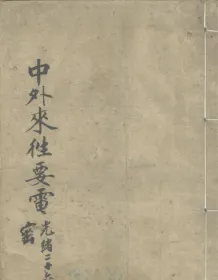 中外來往要電
光緒二十六
密